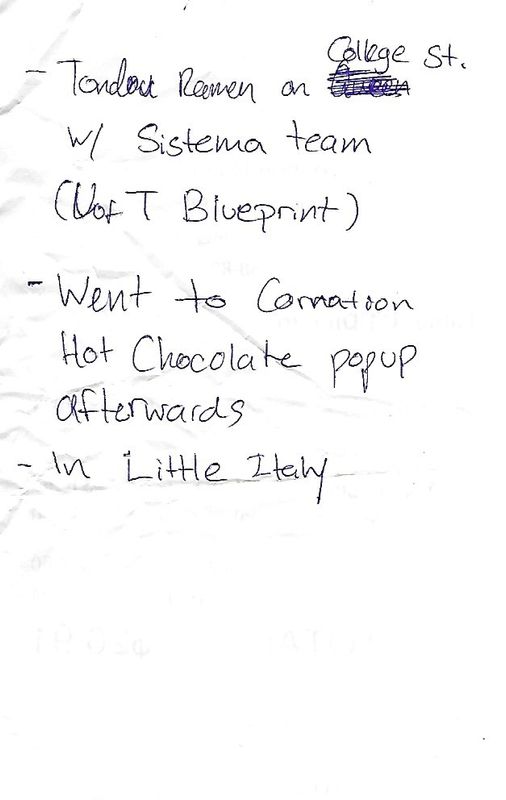 - Tondou Ramen on College St.
w/ Sistema team
(UofT Blueprint)
- Went to Carnation
Hot Chocolate popup
afterwards
- In Little Italy